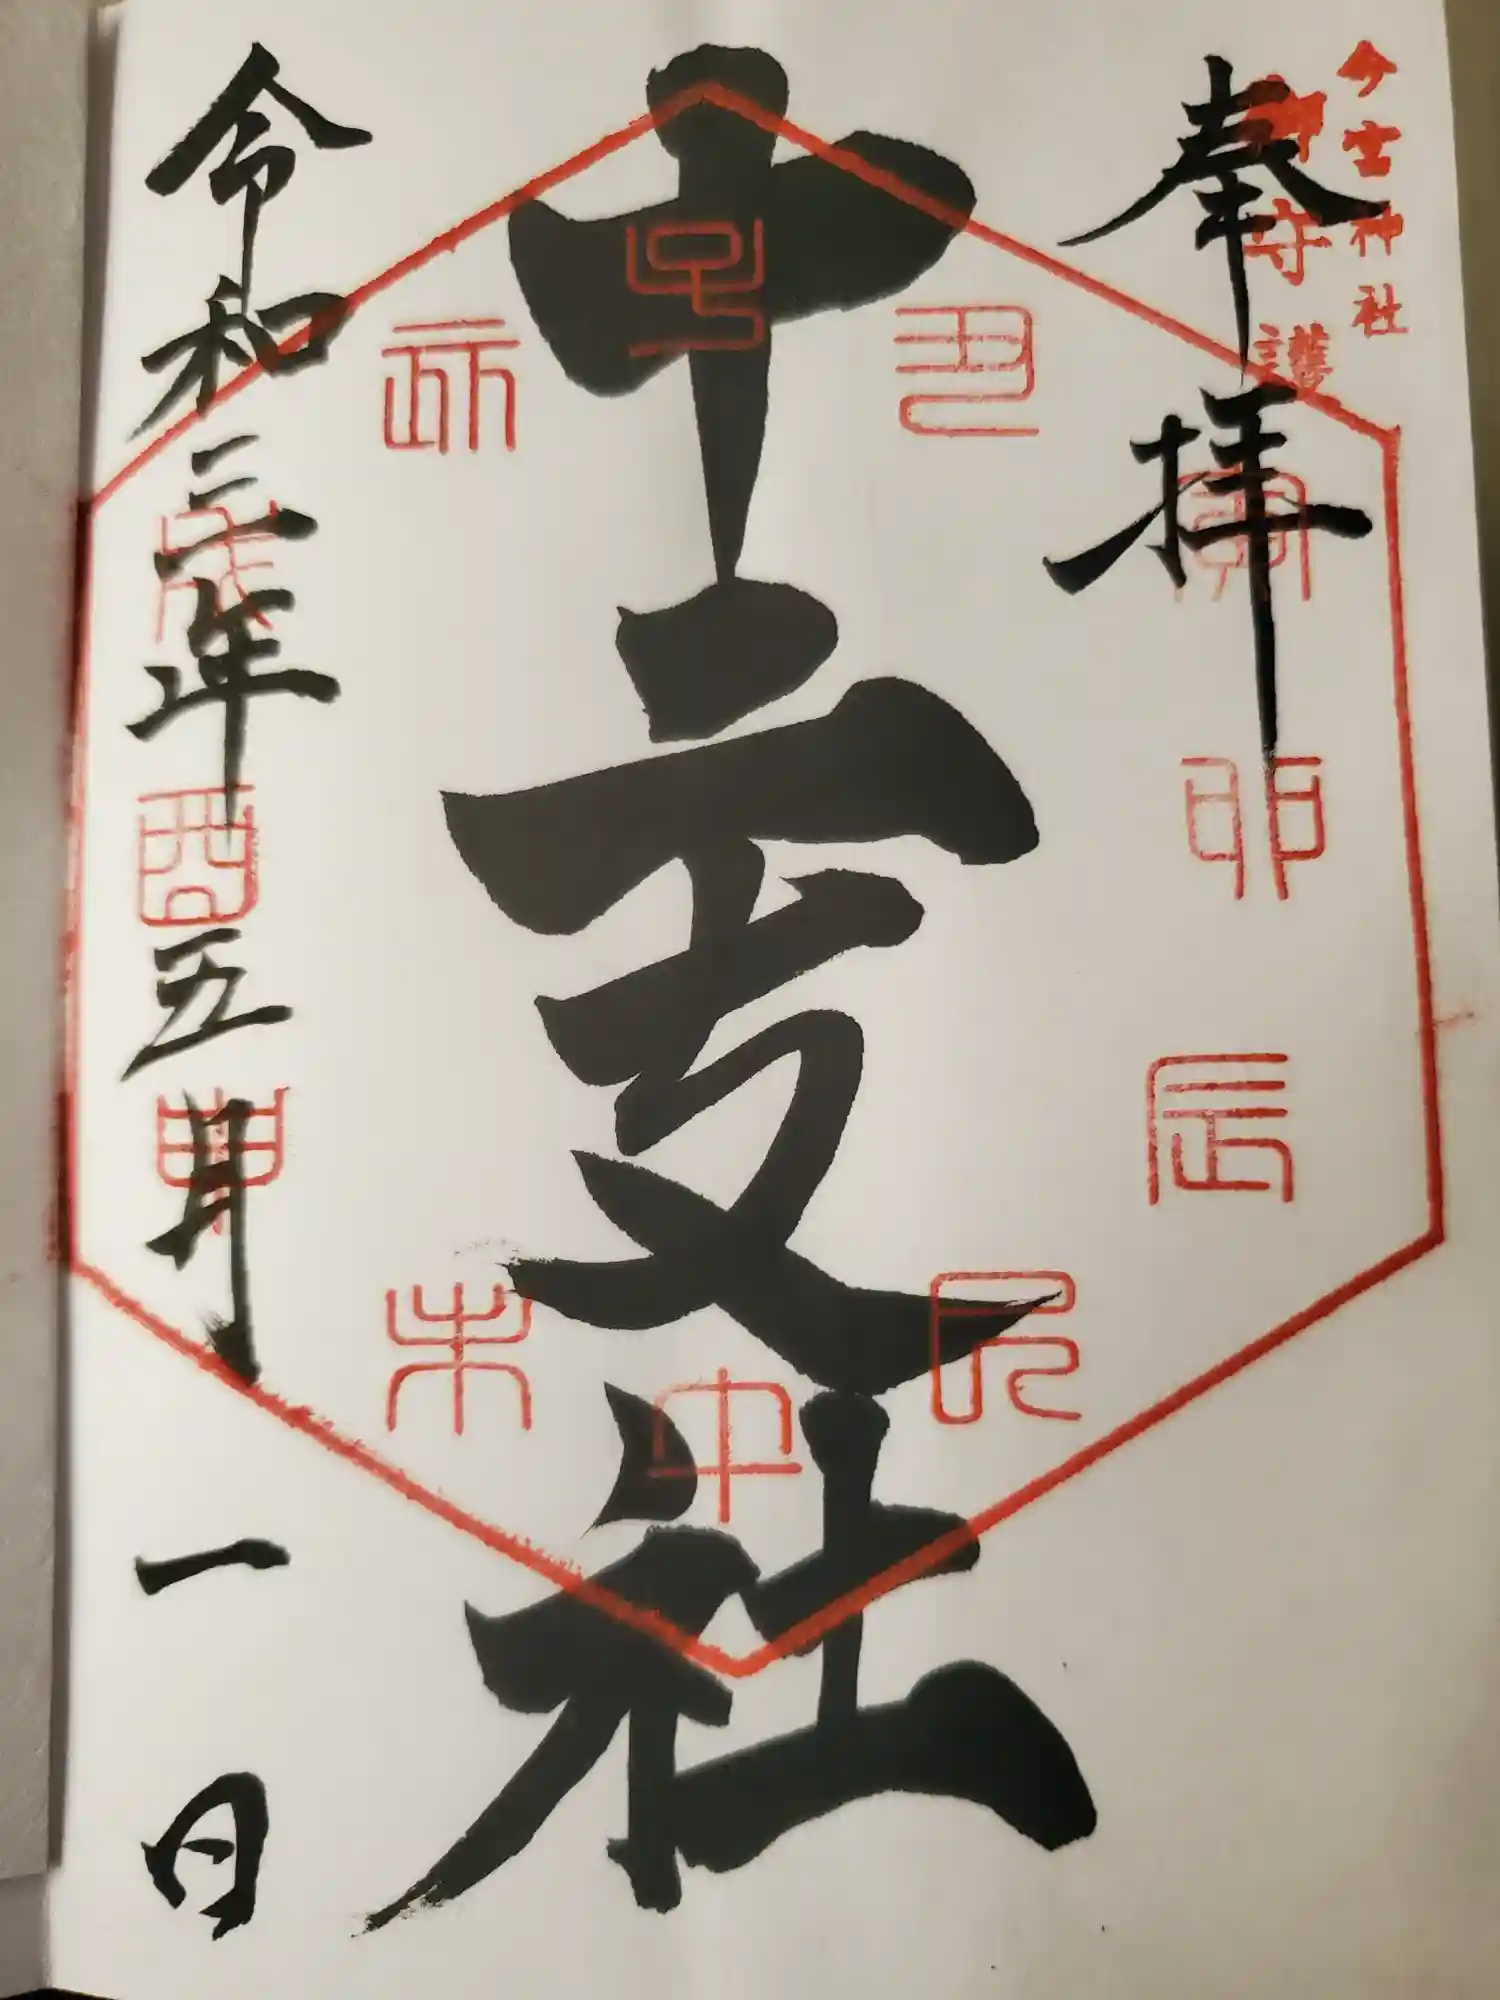 今宮神社
御守護
奉拝
十二支社
子
丑
寅
卯
辰
巳
午
未
申
酉
戌
亥
令和三年五月一日